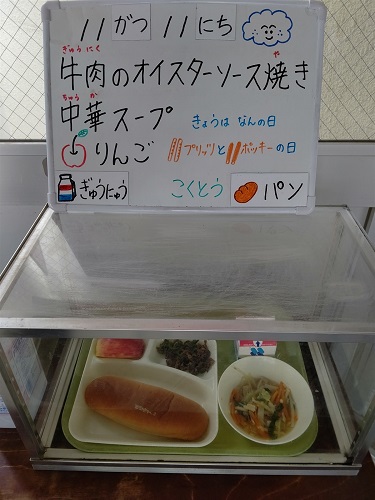 11がつ 11にち
ぎゅうにく や
牛肉のオイスターソース焼き
ちゅうか
中華スープ
きょうは なんの日
りんご プリッツとポッキーの日
ぎゅうにゅう こくとう パン